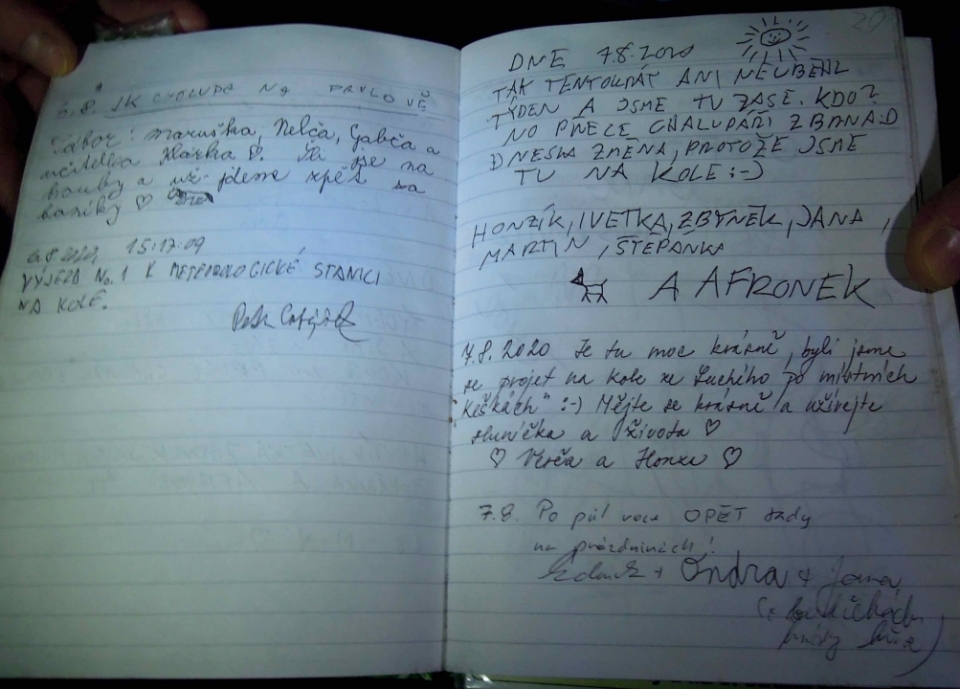 6.8. JK CHALUPA NA PAVLOVĚ
Tábor: Maruška, Nelča, Gabča a
učitelka Klárka ♡. Šli jsme na
houby a už jdeme zpět na
♡
6.8.2020 15:17:09
VÝJEZD No. 1 K METEOROLOGICKÉ STANICI
NA KOLE.
Petr
20
DNE 7.8.2020
TAK TENTOKRÁT ANI NEUBĚHL
TÝDEN A JSME TU ZASE. KDO?
NO PŘECE CHALUPÁŘI Z BRNA:D
DNESKA ZMĚNA, PROTOŽE JSME
TU NA KOLE :-)
HONZÍK, IVETKA, ZBYNĚK, JANA,
MARTIN, ŠTĚPÁNKA
A AFRONEK
7.8.2020 Je tu moc krásně, byli jsme
se projet na kole ze Suchého po místních
"keškách" :-) Mějte se krásně a užívejte
sluníčka a života ♡
♡ Verča a Honza ♡
7.8. Po půl roce OPĚT tady
na prázdninách!
+ Ondra + Jana